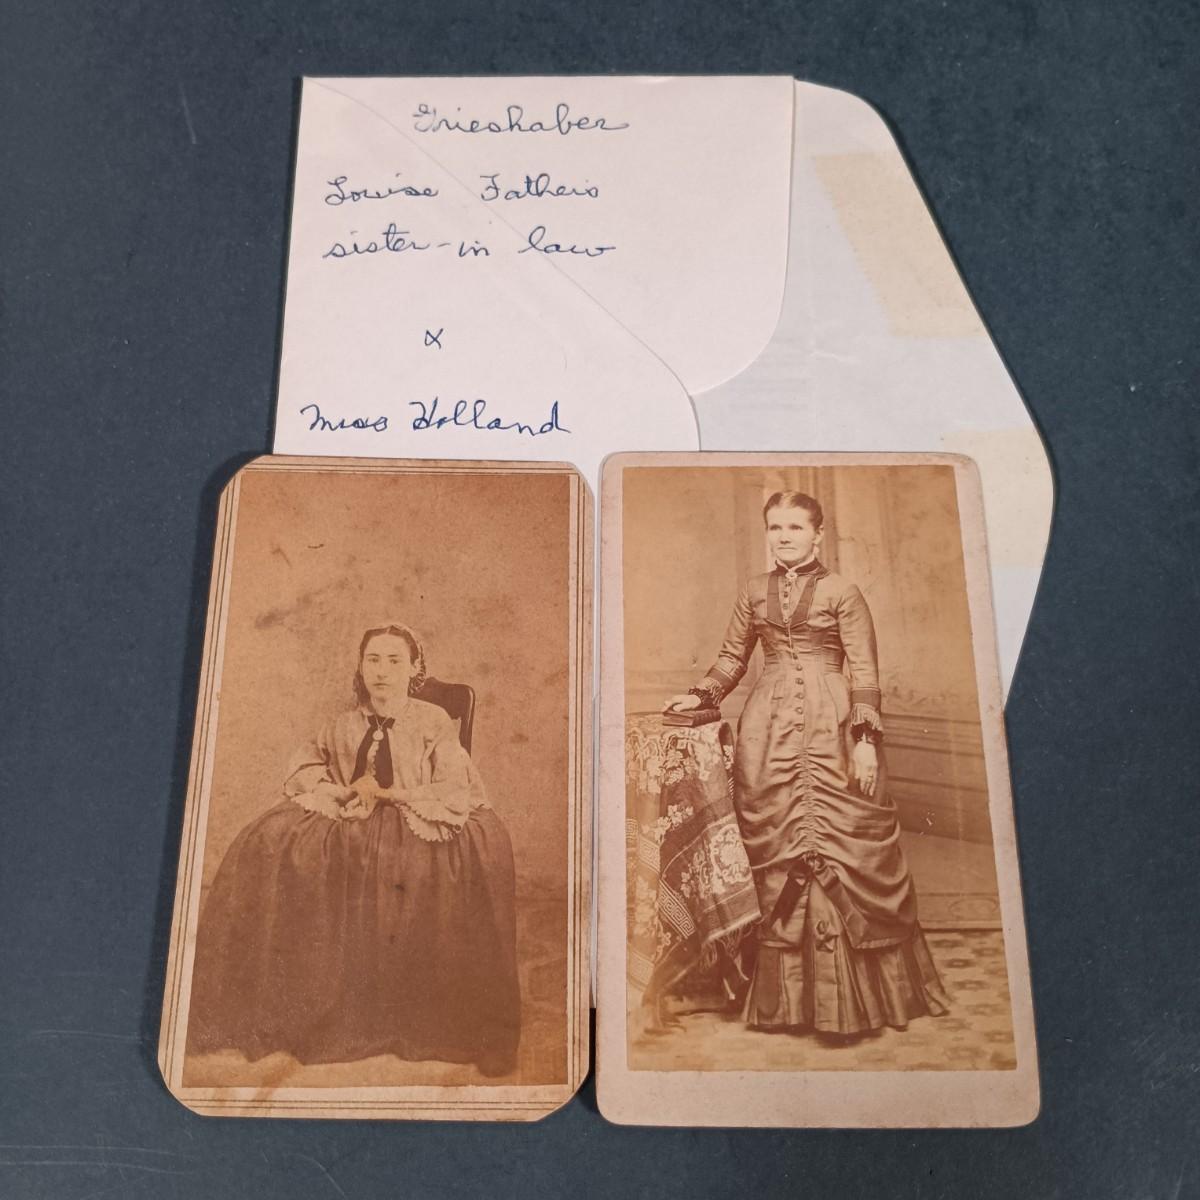 Grieshaber
Louise Fathers
sister-in law
&
Miss Holland